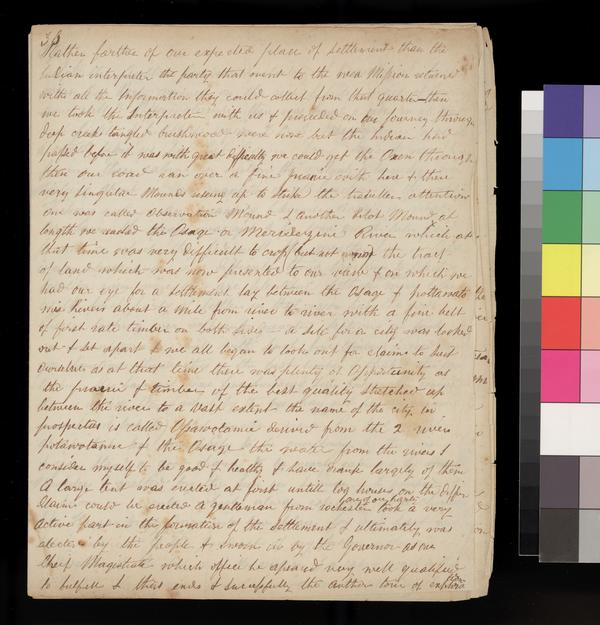 38
Rather farther of our expected place of settlement than the
Indian interpreter the party that went to the new Mission returned
with all the Information they could collect from that quarter then
we took the Interpreter with us & proceeded on our journey through
deep creeks tangled brushwood were none but the Indian had
passed before it was with great difficulty we could get the Oxen through
then our road ran over a fine prairie with here & there
very singular Mounds using up to Strike the travellers attention
one was called Observation Mound & another Pilot Mound at
length we reached the Osage or River which at
that time was very difficult to cross but not the tract
of land which was now presented to our view & on which we
had our eye for a settlement lay between the Osage & pottawato
mie Rivers about a mile from river to river with a fine belt
of first rate timber on both sides a site for a city was looked
out & set apart & we all began to look out for claims to suit
ourselves as at that time there was plenty of Opportunity as
the prairie & timber of the best quality stretched up
between the rivers to a vast extent the name of the city in
prospectus is called Osawotomie derived from the 2 rivers
potawotamie & the Osage the water from the rivers I
consider myself to be good & healthy & have drank largely of them
A large tent was erected at first untill log houses on the differ
Claims could be erected A gentleman from rochester one of our party took a very
Active part in the formation of the settlement & ultimately was
elected by the people & sworn in by the Governor as our
Cheif Magistrate which office he apeared very well qualified
to fulfill & thus ends & sucessfully the author tour of explora
tion